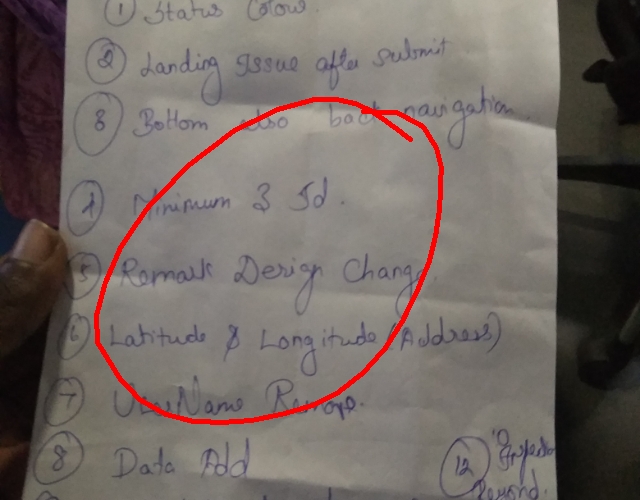 1 Status Colour.
2 Landing Issue after submit
3 Bottom also back navigation.
4 Minimum 3 Id.
5 Remark Design Change.
6 Latitude & Longitude (Address)
7 UserName Remove.
8 Data Add
12